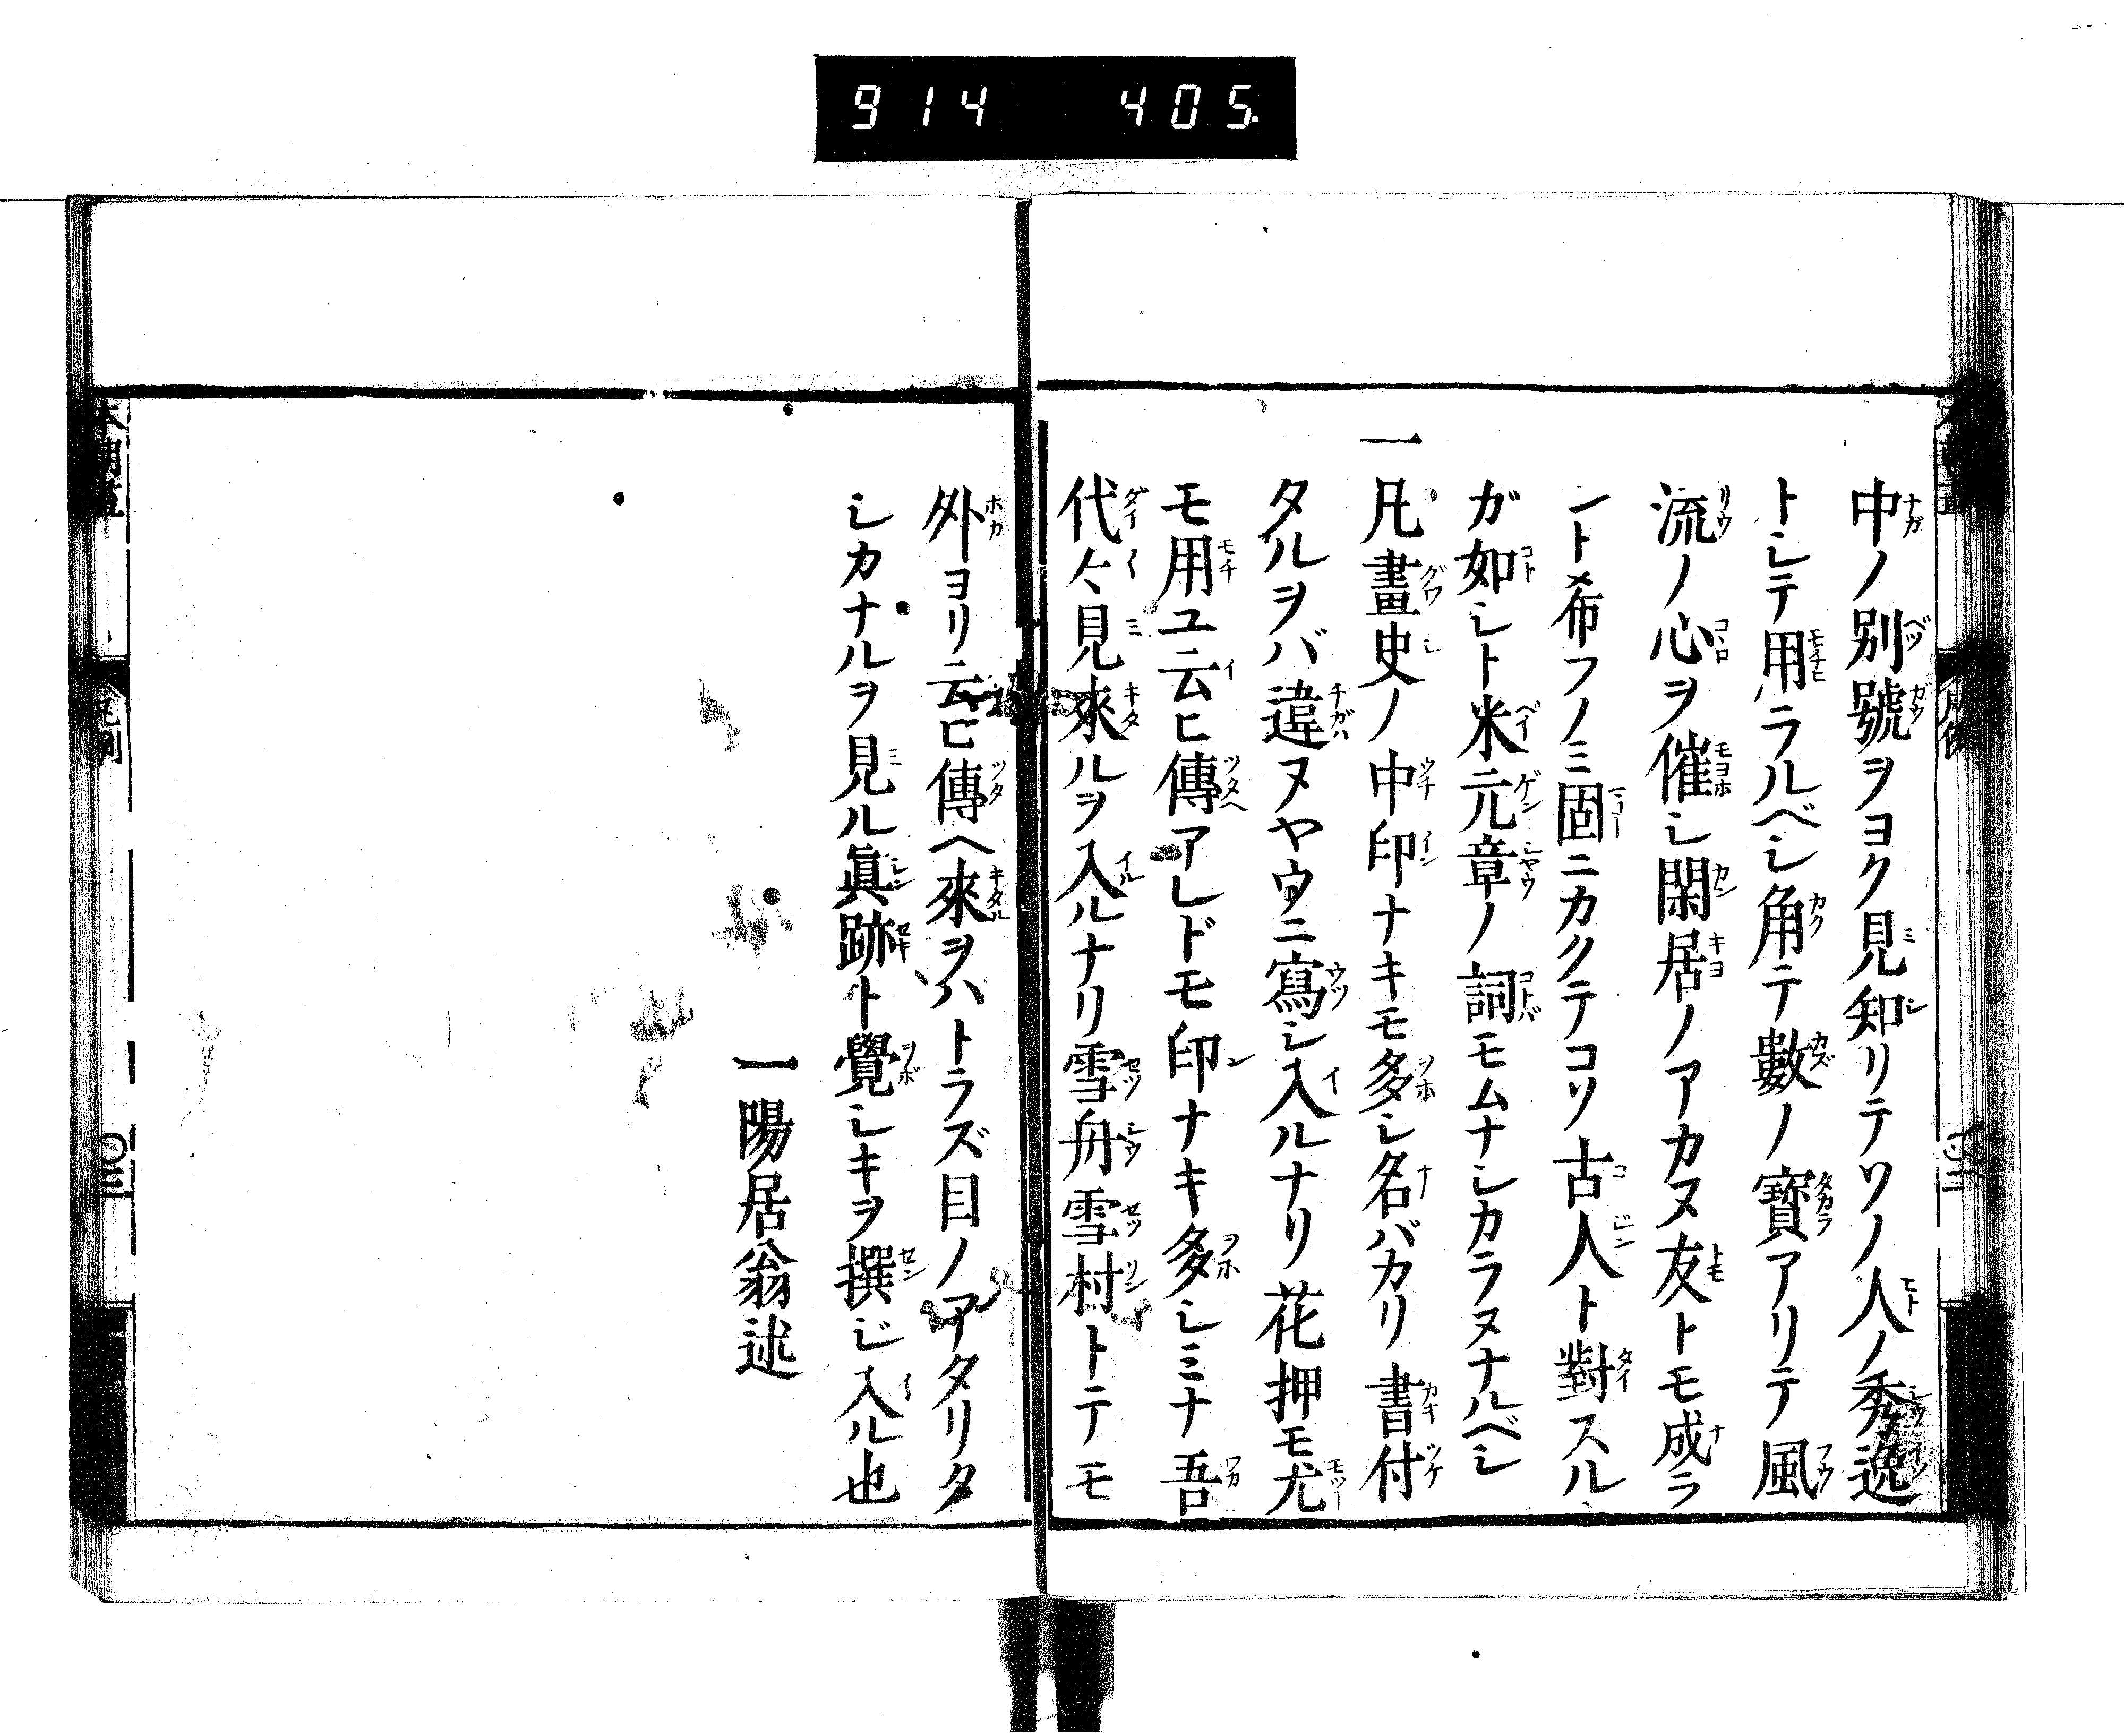 914 405.
中ノ別號ヲヨク見知リテソノ人ノ秀逸
トシテ用ヒラルベシ角テ數ノ寳アリテ風
流ノ心ヲ催シ閑居ノアカヌ友トモ成ラ
ント希フノミ固ニカクテコソ古人ト對スル
ガ如シト米元章ノ詞モムナシカラヌナルベシ
一凡畫史ノ中印ナキモ多シ名バカリ書付
タルヲバ違ヌヤウニ寫シ入ルナリ花押モ尤
モ用ユ云ヒ傳アレドモ印ナキ多シミナ吾
代々見來ルヲ入ルナリ雪舟雪村トテモ
外ヨリ云ヒ傳ヘ來ヲハトラズ目ノアタリタ
シカナルヲ見ル眞跡ト覺シキヲ撰ジ入ル也
一陽居翁述
本朝畫
凡例
〇三